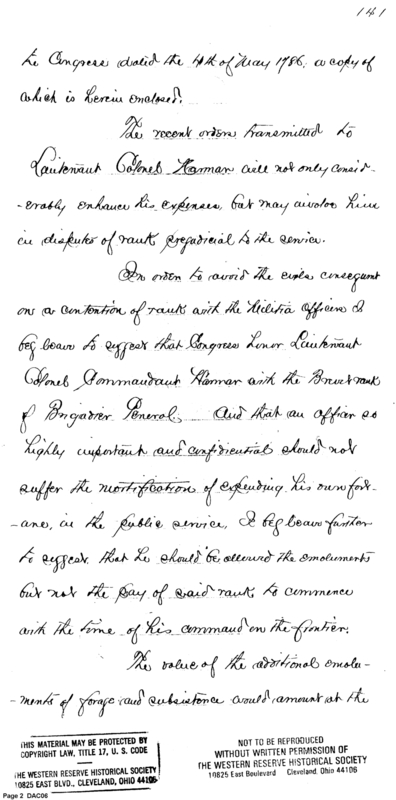 141
to Congress dated the 4th of May 1786. a copy of
which is herein enclosed.
The recent orders transmitted to
Lieutenant Colonel Harmar will not only consid-
-erably enhance his expenses, but may involve him
in disputes of rank prejudicial to the service.
In order to avoid the evils consequent
on a contention of rank with the Militia officers I
beg leave to suggest that Congress honor Lieutenant
Colonel Commandant Harmar with the Brevet rank
of Brigadier General. And that an officer so
highly important and confidential should not
suffer the mortification of expending his own fort-
-une, in the public service, I beg leave further
to suggest that he should be allowed the emoluments
but not the pay of said rank to commence
with the time of his command on the frontier.
The value of the additional emolu-
-ments of forage and subsistence would amount at the
THIS MATERIAL MAY BE PROTECTED BY
COPYRIGHT LAW, TITLE 17, U. S. CODE
THE WESTERN RESERVE HISTORICAL SOCIETY
10825 EAST BLVD., CLEVELAND, OHIO 44106
NOT TO BE REPRODUCED
WITHOUT WRITTEN PERMISSION OF
THE WESTERN RESERVE HISTORICAL SOCIETY
10825 East Boulevard Cleveland, Ohio 44106
Page 2 DAC06